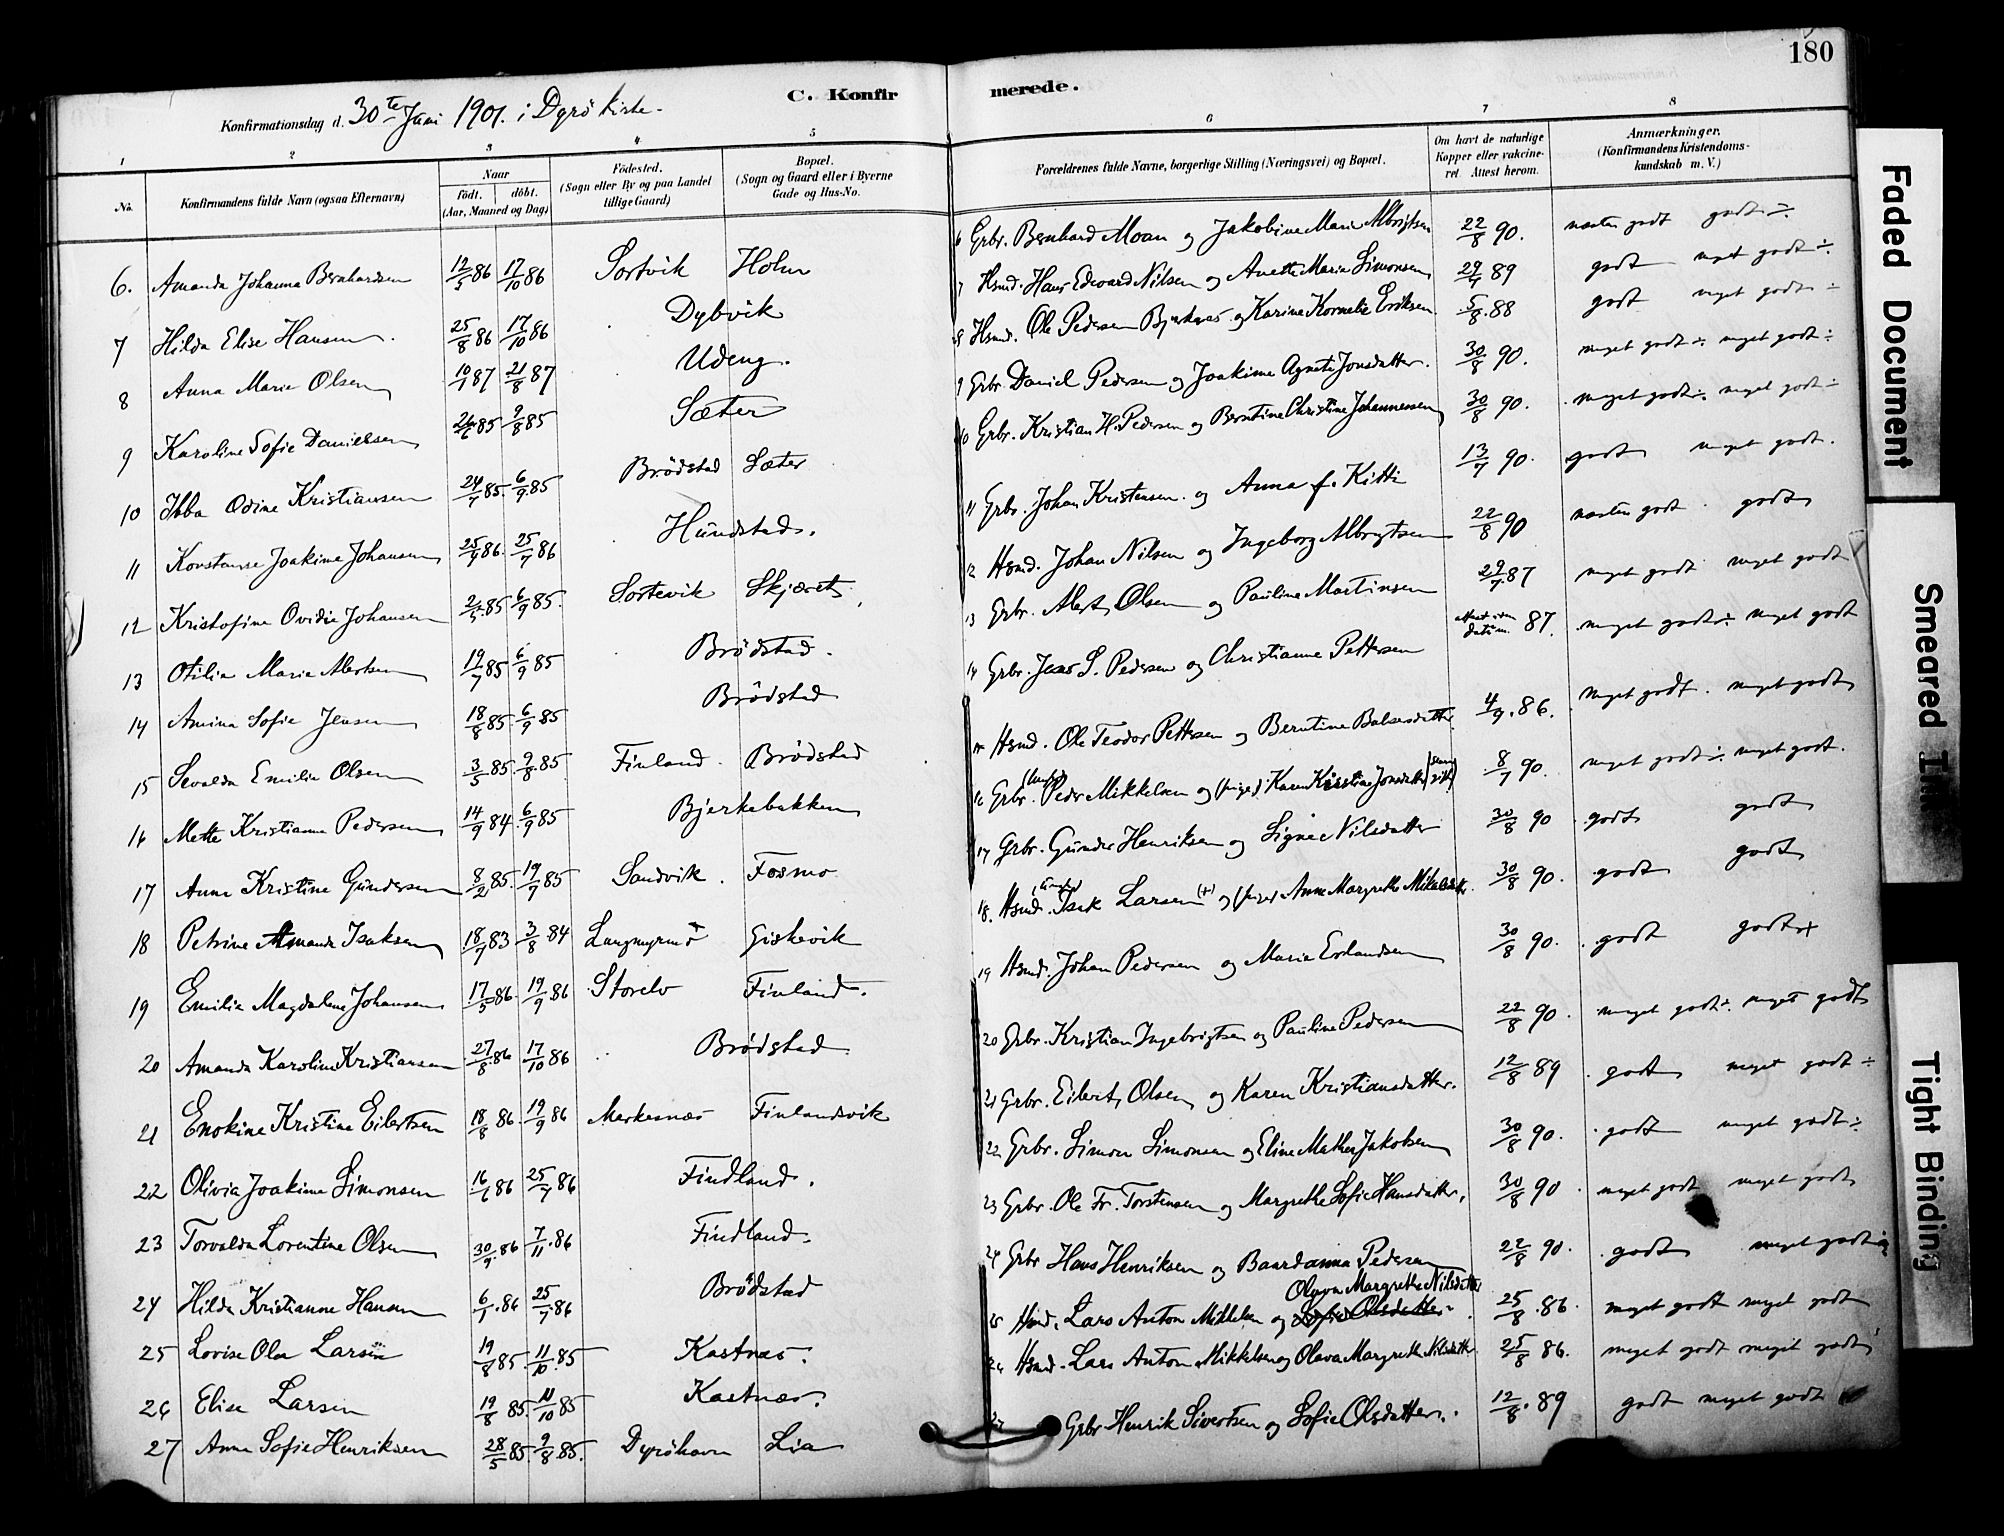 180
C. Konfirmerede.
Konfirmationsdag d. 30te Juni 1901. i Dyrö kirke.
1 2 3 4 5 6 7 8
No. Konfirmandens fulde Navn (ogsaa Efternavn) Naar födt. döbt. (Aar, Maaned og Dag) Födested. (Sogn eller By og paa Landet tillige Gaard) Bopæl. (Sogn og Gaard eller i Byerne Gade og Hus-No. Forældrenes fulde Navne, borgerlige Stilling (Næringsvei) og Bopæl. Om havt de naturlige Kopper eller vakcineret. Attest herom. Anmærkninger. (Konfirmandens Kristendomskundskab m. V.)
6. Amanda Johanna Bernhardsen 12/5 86 17/10 86 Sortvik Holm 6 Grbr. Bernhard Moan og Jakobine Marie Albrigtsen 22/8 90. næsten godt godt ÷
7 Hilda Elise Hansen. 25/8 86 17/10 86 Dybvik 7 Hsmd. Hans Edvard Nilsen og Anette Marie Simonsen 29/7 89 godt meget godt ÷
8 Anna Marie Olsen 10/1 87 21/8 87 Udeng. 8 Hsmd. Ole Pedersen Bjerknes og Karine Kornelie Eriksen 5/8. 88 godt meget godt ÷
9 Karoline Sofie Danielsen 26/6 85 9/8 85 Sæter 9 Grbr. Daniel Pedersen og Joakime Agnete Jonsdatter. 30/8 90. meget godt ÷ meget godt ÷
10 Ibba Odine Kristiansen 24/7 85. 6/9 85 Brödstad Sæter 10 Grbr. Kristian H. Pedersen og Berntine Christine Johannessen 30/8 90. meget godt ÷ meget godt ÷
11 Konstanse Joakime Johansen 25/4 86. 25/7 86 Hundstad. 11 Grbr. Johan Kristensen. og Anna f. Kitti 13/7 90. godt meget godt.
12 Kristofine Ovidie Johansen 2/5. 85 6/9 85. Sortevik Skjæret 12 Hsmd. Johan Nilsen og Ingeborg Albrigtsen 22/8 90 næsten godt godt
13 Otilia Marie Alertsen 19/7 85 6/9 85 Brödstad. 13 Grbr. Alert Olsen og Pauline Martinsen 29/7 87 meget godt meget godt
14 Amina Sofie Jensen 18/8 85. 6/9 85 Brödstad 14 Grbr. Jens S. Pedersen og Christianne Pettersen 87. meget godt ÷ meget godt
15 Sevalda Emilie Olsen 3/5 85. 9/8. 85. Finland. Brödstad 15 Hsmd. Ole Teodor Pettersen og Berntine Balsersdatter 4/9. 86. meget godt. meget godt
16 Mette Kristianne Pedersen 14/9 84 6/9 85 Bjerkebakken 16 Grbr. Peder Mikkelsen og (pige) Karen Kirstine Jonsdatter 8/7 90. meget godt ÷ meget godt.
17 Anna Kristine Gündersen 8/2 85. 19/9 85 Sandvik. Fosmo 17 Grbr. Günder Henriksen og Signe Nilsdatter 30/8 90 godt godt
18 Petrine Amanda Isaksen 18/7 83 3/8 84 Langmyrmo Giskevik 18. Hsmd. Isak Larsen (+) og (pige) Anne Margrethe Mikalsdatter. 30/8 90. godt godt
19 Emilie Magdalene Johansen 17/5 86. 19/9. 86 Storelv Finland. 19 Hsmd. Johan Pedersen og Marie Erlandsen 30/8 90. godt godt +
20 Amanda Karoline Kristiansen 27/8. 86 17/10 86 Brödstad 20 Grbr. Kristian Ingebrigtsen og Pauline Pedersen 22/8 90. meget godt ÷ meget godt
21 Enokine Kristine Eilertsen 18/8 86. 19/9 86 Merkesnæs Finlandsvik 21 Grbr. Eilert Olsen og Karen Kristiansdatter. 12/8 89 godt meget godt ÷
22 Olivia Joakime Simonsen 16/6 86 25/7 86 Findland. 22 Grbr. Simon Simonsen og Eline Mathea Jakobsen 30/8 90. godt meget godt ÷
23 Torvalda Lorentine Olsen 30/9. 86 7/11. 86 Findland. 23 Grbr. Ole Fr. Torstensen og Margrethe Sofie Hansdatter. 30/8 90. meget godt meget godt
24 Hilda Kristianne Hansen 6/7. 86 25/7. 86 Brödstad 24 Grbr Hans Henriksen og Baardanna Pedersen 22/8 90. godt meget godt
Olava Margrethe Nilsdatter
25 Lovise Olea Larsen 19/8 85 11/10. 85 Kastnæs. 25 Hsmd. Lars Anton Mikkelsen og Sofie Olsdatter. 25/8. 86. meget godt meget godt
26 Elise Larsen 19/8 85. 11/10 85 Kastnæs. 26 Hsmd. Lars Anton Mikkelsen og Olava Margrethe Nilsdatter 25/8 86. meget godt meget godt
27 Anna Sofie Henriksen 28/5 85. 9/8. 85. Dyröhavn Lia 27 Grbr Henrik Sivertsen og Sofie Olsdatter. 12/8. 89 godt meget godt
Faded Document
Smeared Ink
Tight Binding